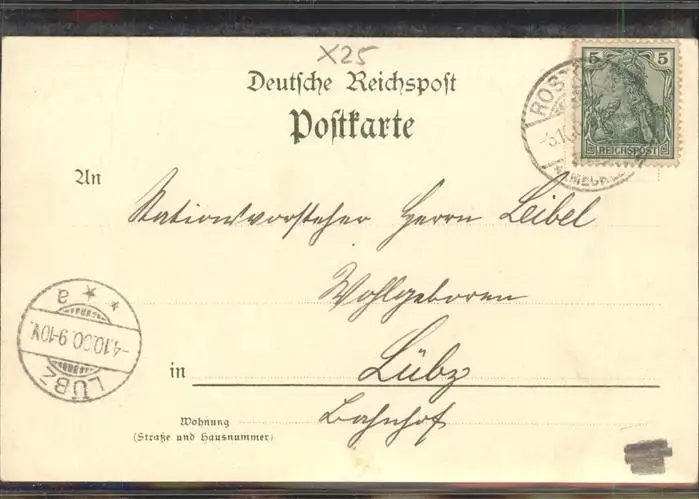 X25
Deutsche Reichspost
Postkarte
5 5
REICHSPOST
ROS
-3.10.0
An
Stationsvorsteher Herrn Leibel
Wohlgeboren
in Lübz
Bahnhof
Wohnung
(Straße und Hausnummer)
LÜBZ
-4.10.00.9-10V.
* * a